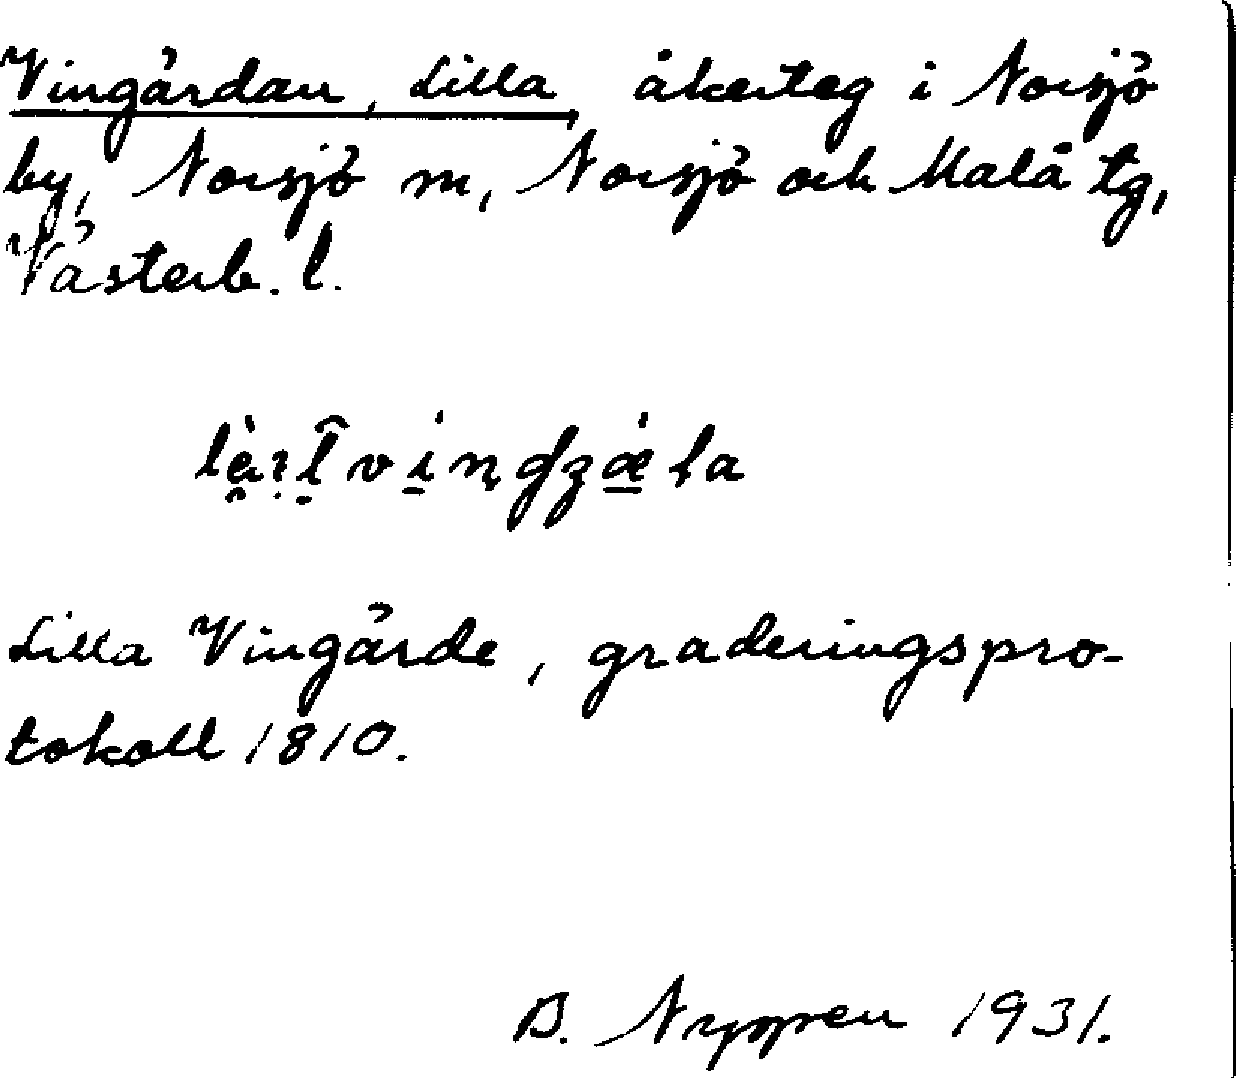 Vingärdan, Lilla, åkerteg i Norsjö
by, Norsjö sn, Norsjö och Malå tg,
Västerb. l.
Lilla Vingärde, graderingspro-
tokoll 1810.
B. Nygren 1931.